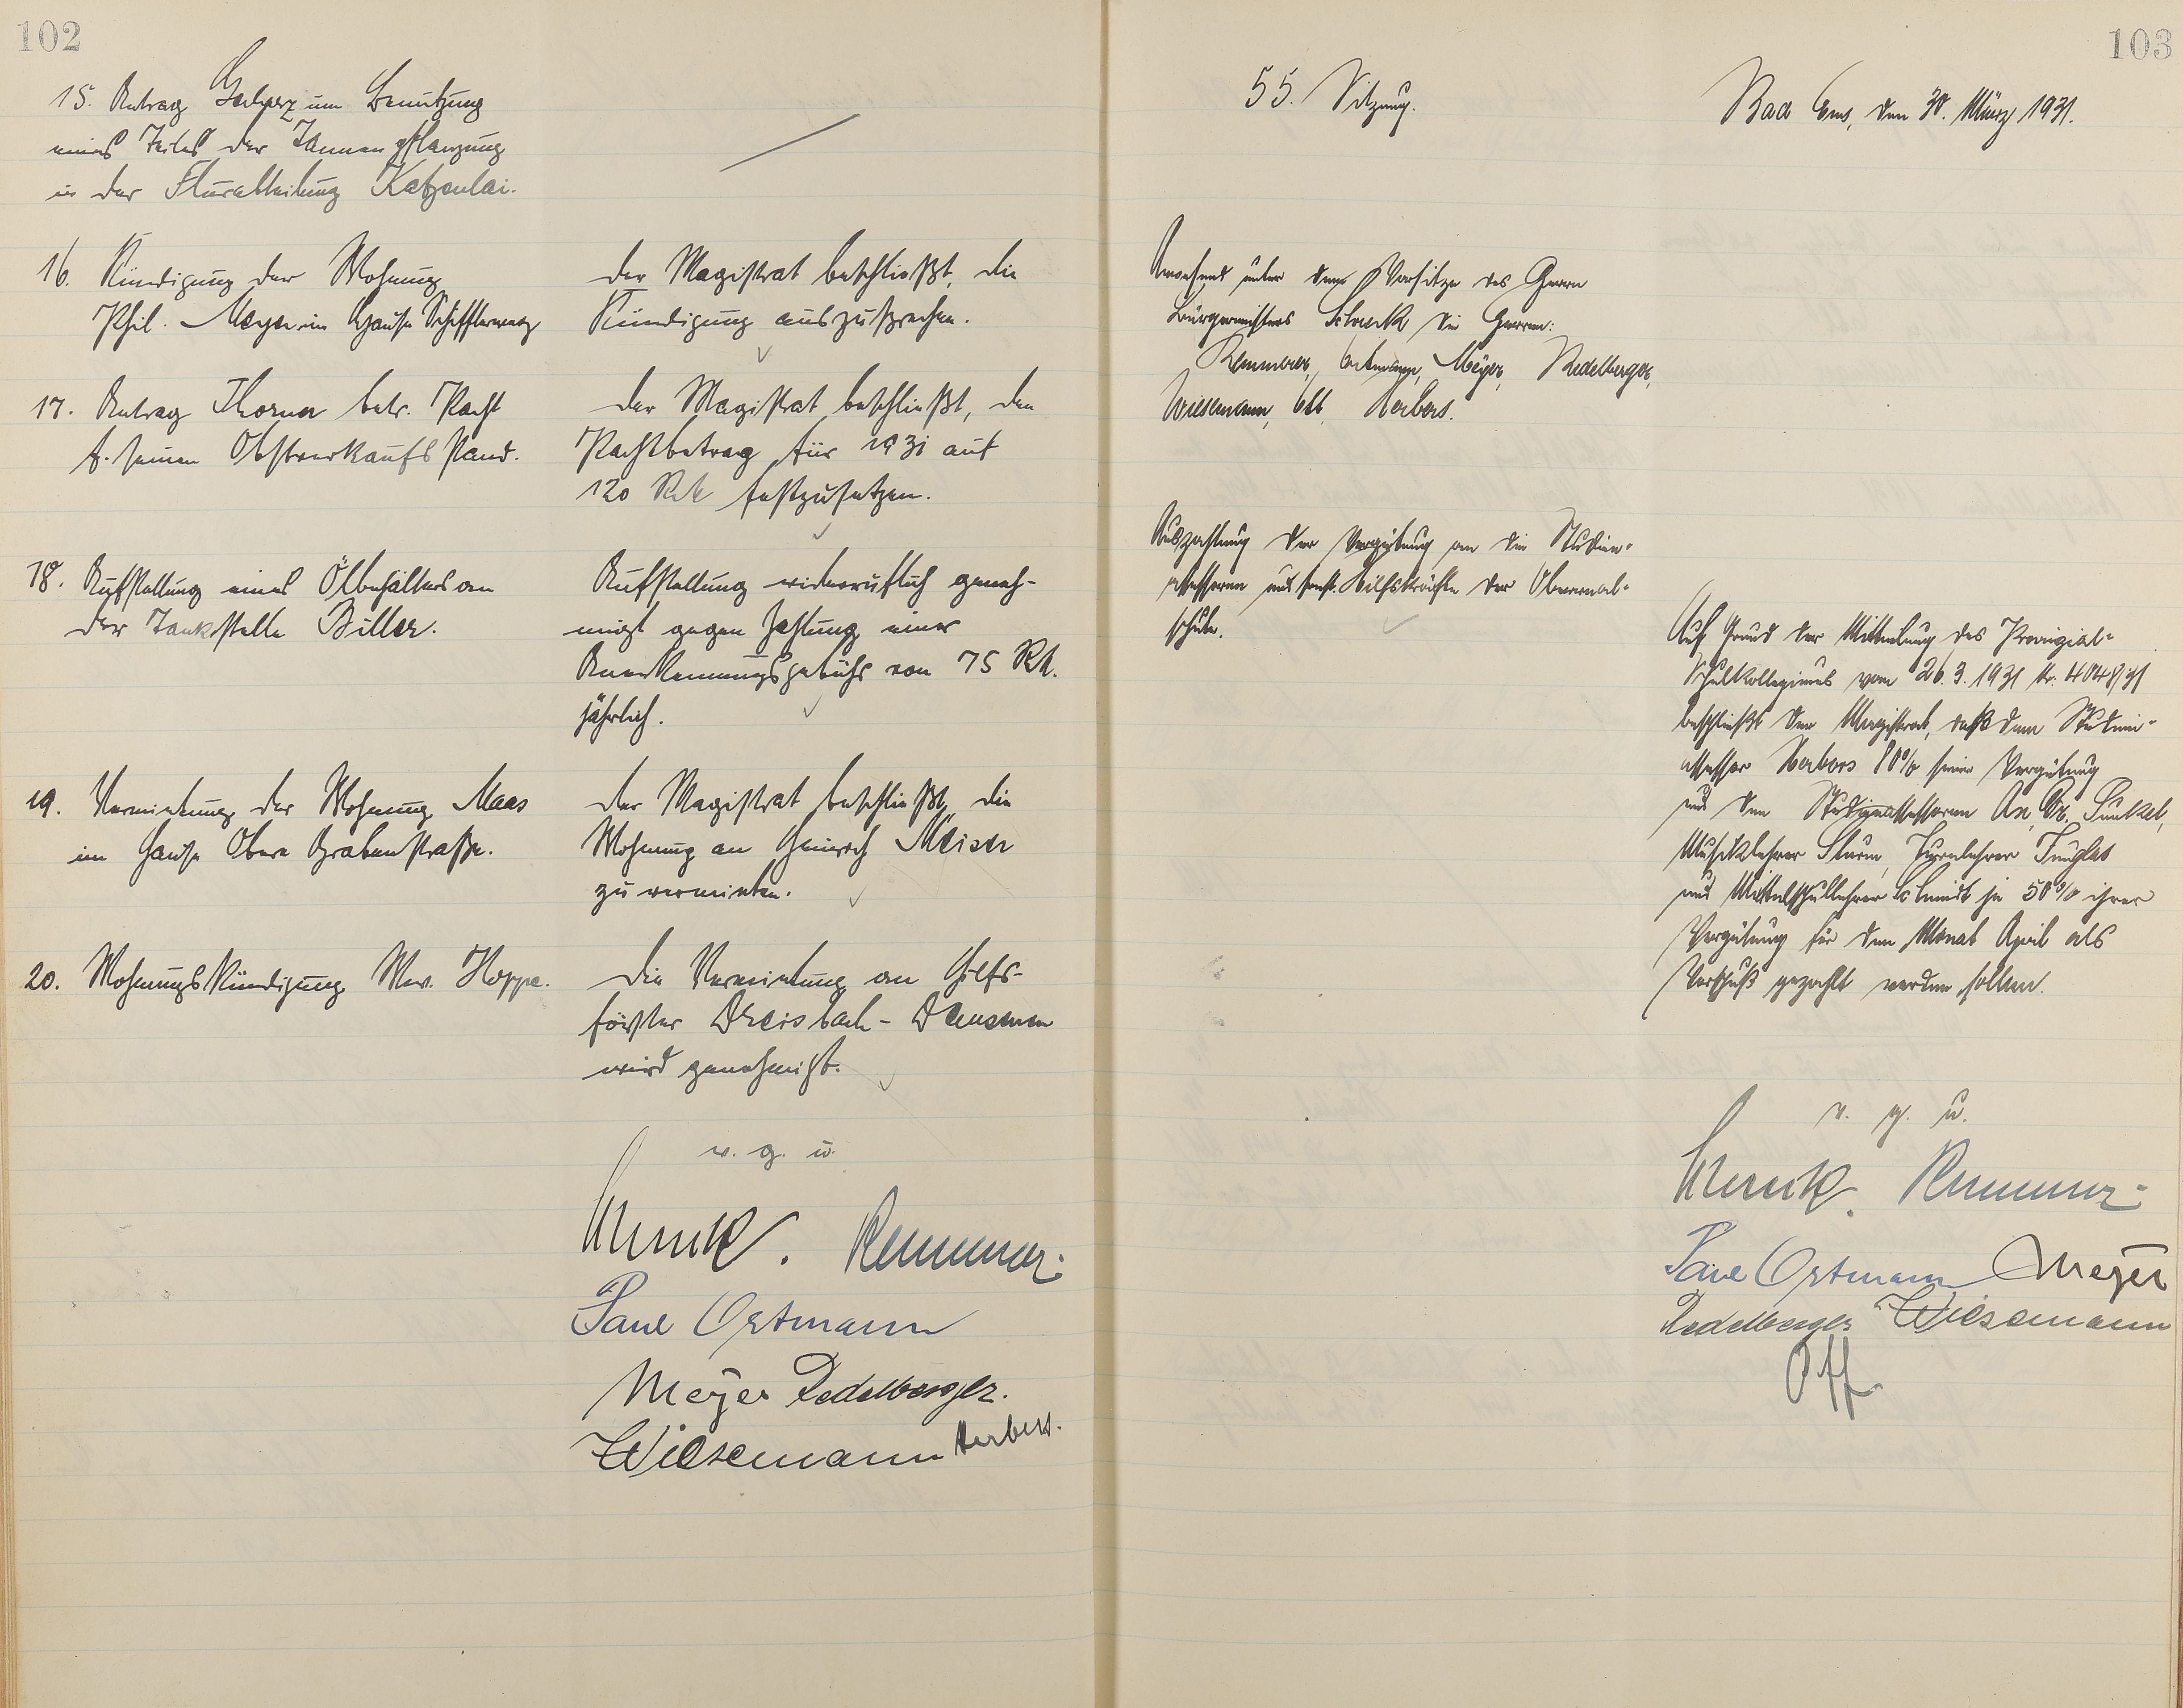 102
15. Antrag um Benutzung
eines Teiles der Tannenpflanzung
in der Flurabteilung Katzenlai.
16. Kündigung der Wohnung
Phil. Meyer im Hause
der Magistrat beschließt, die
Kündigung auszusprechen.
17. Antrag Thorner betr. Pacht
f. seinen Obstverkaufsstand.
der Magistrat beschließt, den
Pachtbetrag für 1931 auf
120 RM festzusetzen.
18. Aufstellung eines Ölbehälters an
der Tankstelle Biller.
Aufstellung widerruflich geneh-
migt gegen Zahlung einer
Anerkennungsgebühr von 75 RM.
jährlich.
19. Vermietung der Wohnung Maas
im Hause Obere Grabenstraße.
der Magistrat beschließt, die
Wohnung an Heinrich Meiser
zu vermieten.
20. Wohnungskündigung Ww. Hoppe.
die Vermietung an Hilfs-
förster Dreisbach - Dausenau
wird genehmigt.
v. g. u.
Schenck. Kemmer.
Paul Ortmann
Meyer Redelberger.
Wiesemann Herbert.
103
55. Sitzung.
Bad Ems, den 30. März 1931.
Anwesend unter dem Vorsitze des Herrn
Bürgermeisters Schenck die Herren:
Kemmer, Ortmann, Meyer, Redelberger,
Wiesemann, Ott, Herbert.
Auszahlung der Vergütung an die Studien-
assessoren und sonst. Hilfskräfte der Oberreal-
schule.
Auf Grund der Mitteilung des Provinzial-
Schulkollegiums vom 26.3.1931 Nr.
beschließt der Magistrat, daß dem Studien-
assessor Herbors 80% seiner Vergütung
und den Studienassessoren Ax, Dr. Sünkel,
Musiklehrer Sturm, Turnlehrer
und Mittelschullehrer Schmidt je 50% ihrer
Vergütung für den Monat April als
Vorschuß gezahlt werden sollen.
v. g. u.
Schenck. Kemmer.
Paul Ortmann Meyer
Redelberger Wiesemann
Ott